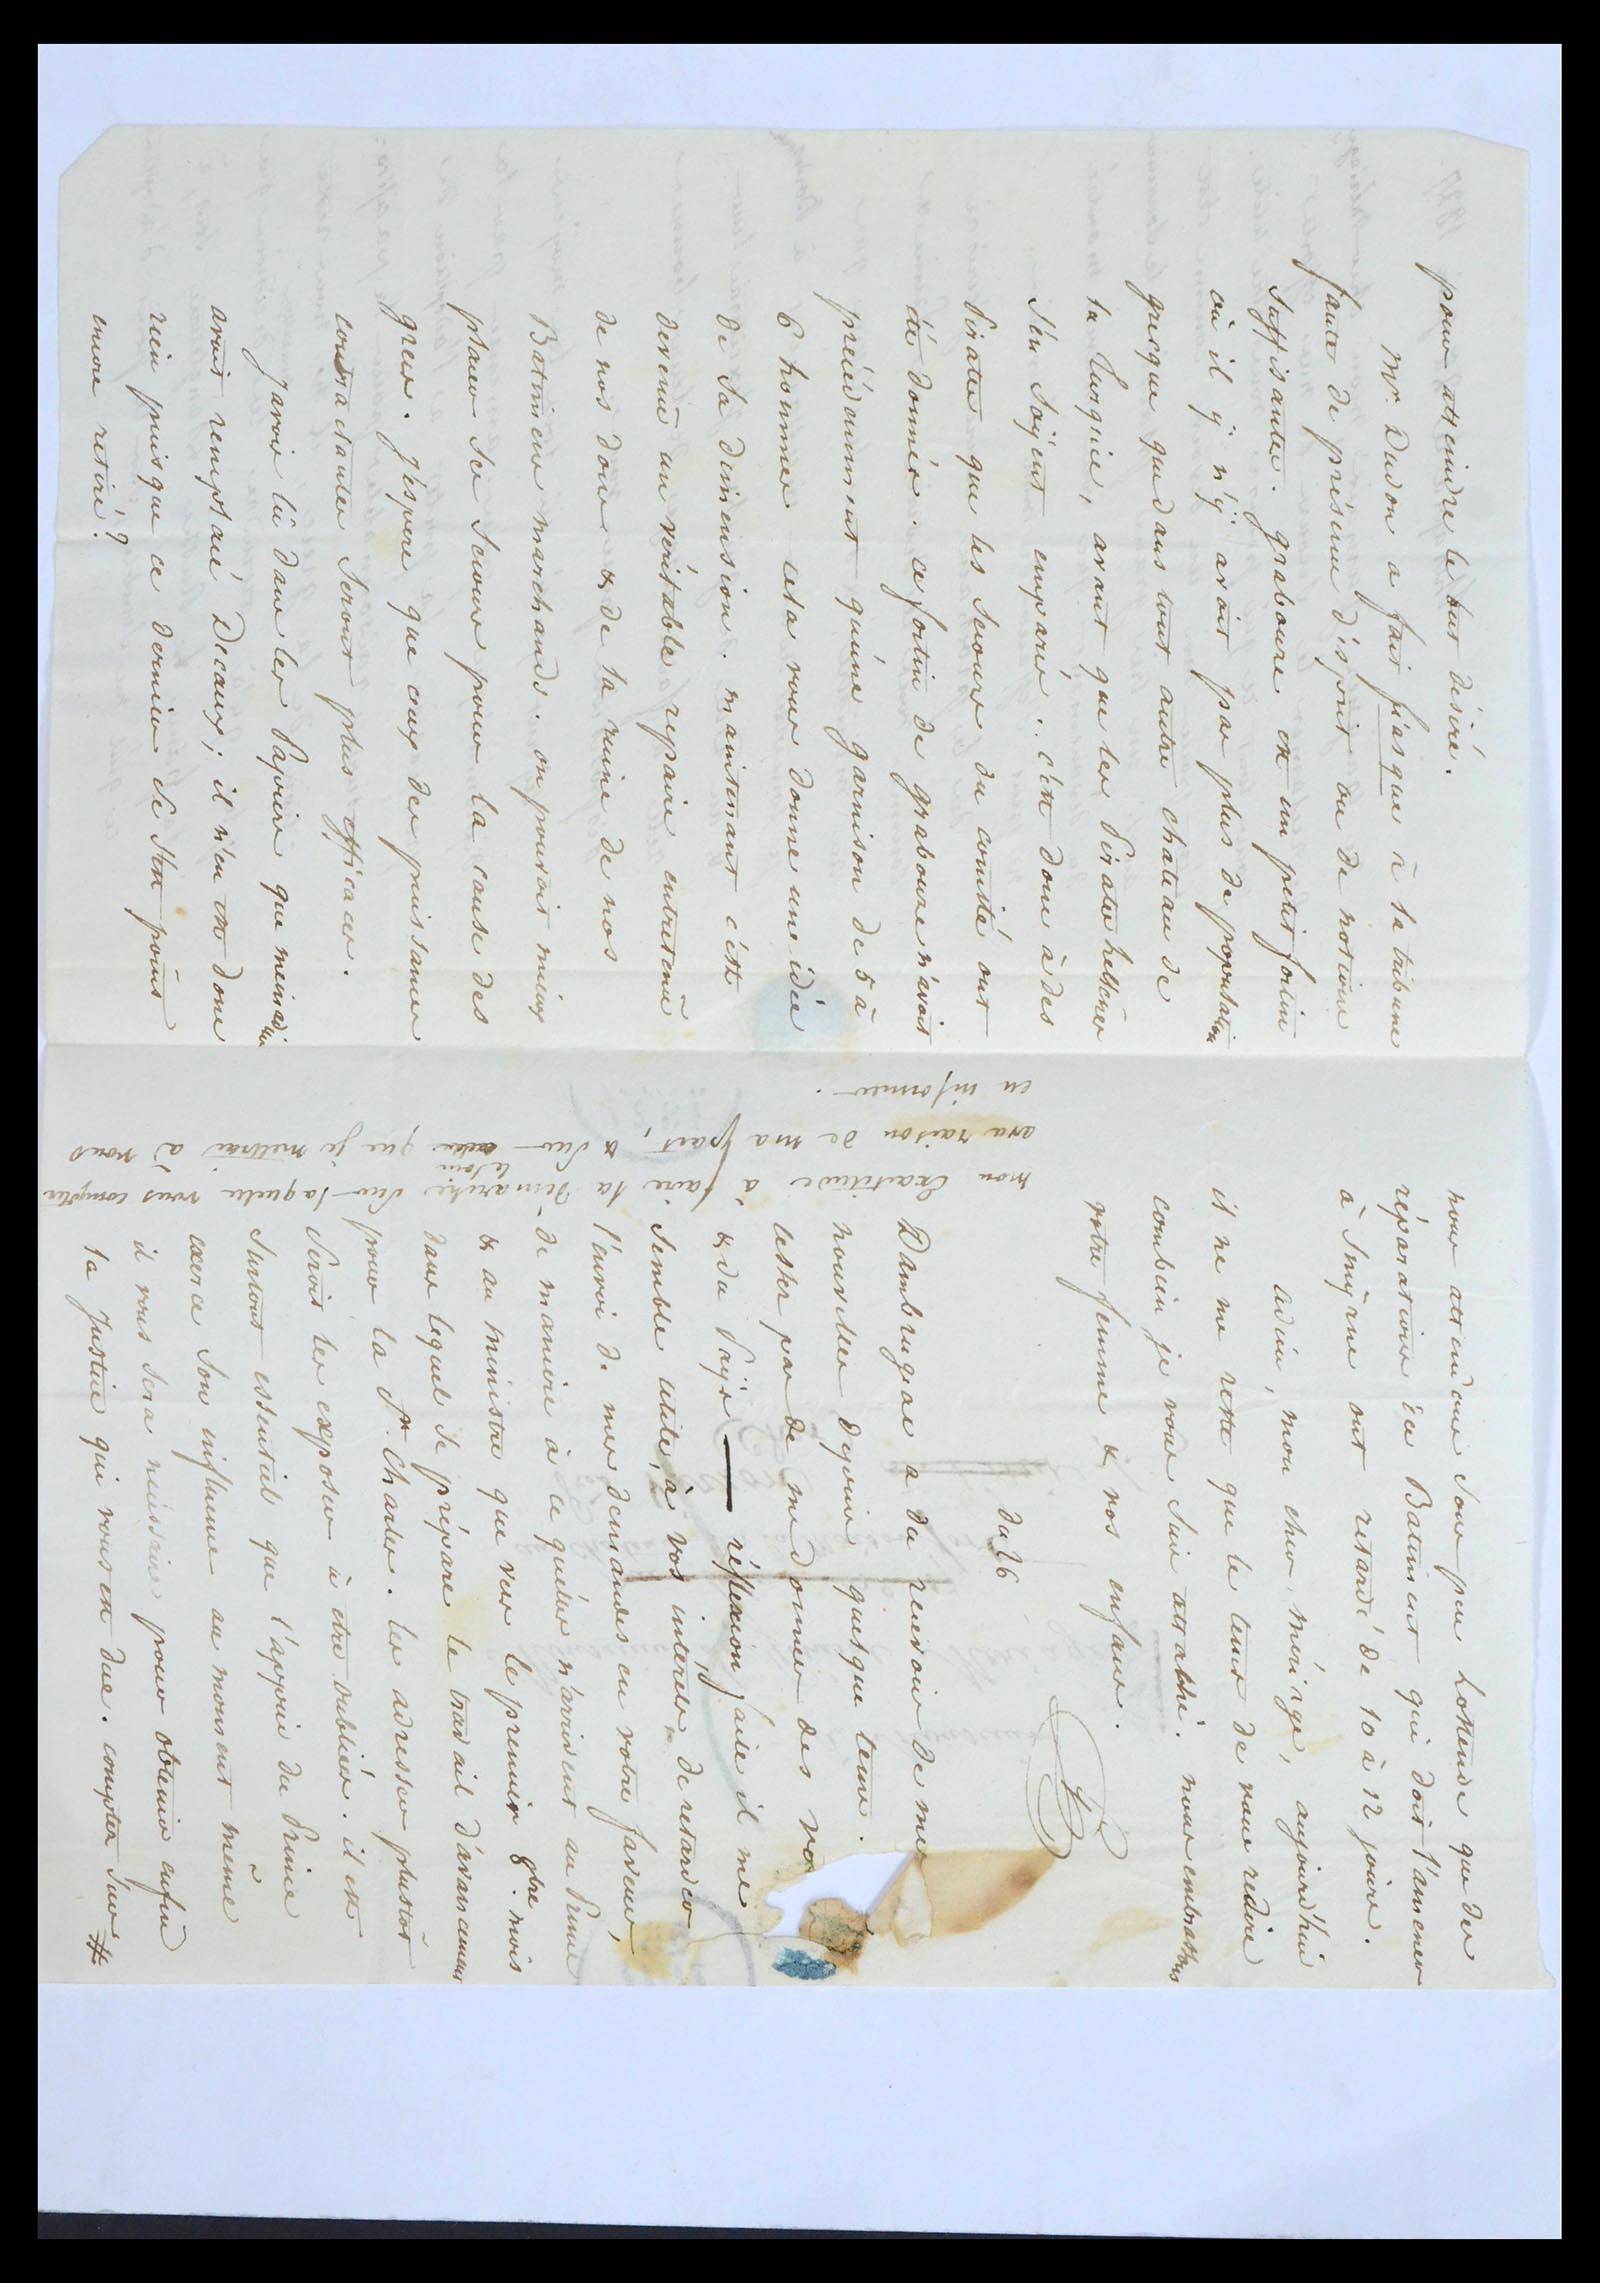 pour atteindre le but désiré.
Mr. Dudon a fait fiasque à la tribune
faute de présence d'esprit ou de notions
suffisantes. grabouse est un petit fortin
où il n'y avoit pas plus de population
grecque que dans tout autre chateau de
la Turquie, avant que les Pirates hellènes
s'en soÿent emparés. c'est donc à des
Pirates que les secours du comité ont
été donnés. ce fortin de grabouse n'avoit
précédemment qu'une garnison de 5 à
6 hommes cela vous donne une idée
de sa dimension. maintenant c'est
devenu un véritable repaire entretenu
de nos dons & de la ruine de nos
Batiments marchands. on pouroit mieux
placer ses secours pour la cause des
grecs. j'espère que ceux des puissances
contractantes seront plus efficaces.
j'avois lû dans les Papiers que
avoit remplacé Decaux; il n'en est donc
rien puisque ce dernier ne s'est point
encore retiré?
nous attendons sous peu Lostende que des
réparations à ce Batiment qui doit l'amener
à Smÿrne ont retardé de 10 à 12 jours.
adieu, mon cher, aujourd'hui
il ne me reste que le tems de vous redire
combien je vous suis attaché. nous embrassons
votre femme & vos enfans.
du 26
Dambrugeac a du recevoir de mes
nouvelles depuis quelque tems.
lester pas de me donner des
& du Païs — réflexion faite il me
semble utile, à vos interets de retarder
l'envoi de mes demandes en votre faveur,
de manière à ce qu'elles n'arrivent au Prince
& au ministre que vers le premier 8bre. mois
dans lequel se prépare le travail d'avancement
pour la St. Charles. les adresser plustôt
seroit les exposer à être oubliées. il est
surtout essentiel que l'appui du Prince
exerce son influence au moment même
il vous sera nécessaire pour obtenir enfin
la justice qui vous est due. comptez sur #
mon exactitude à faire la démarche sur laquelle vous comptez
avec raison de ma part, & sur le soin que je mettrai à vous
en informer.